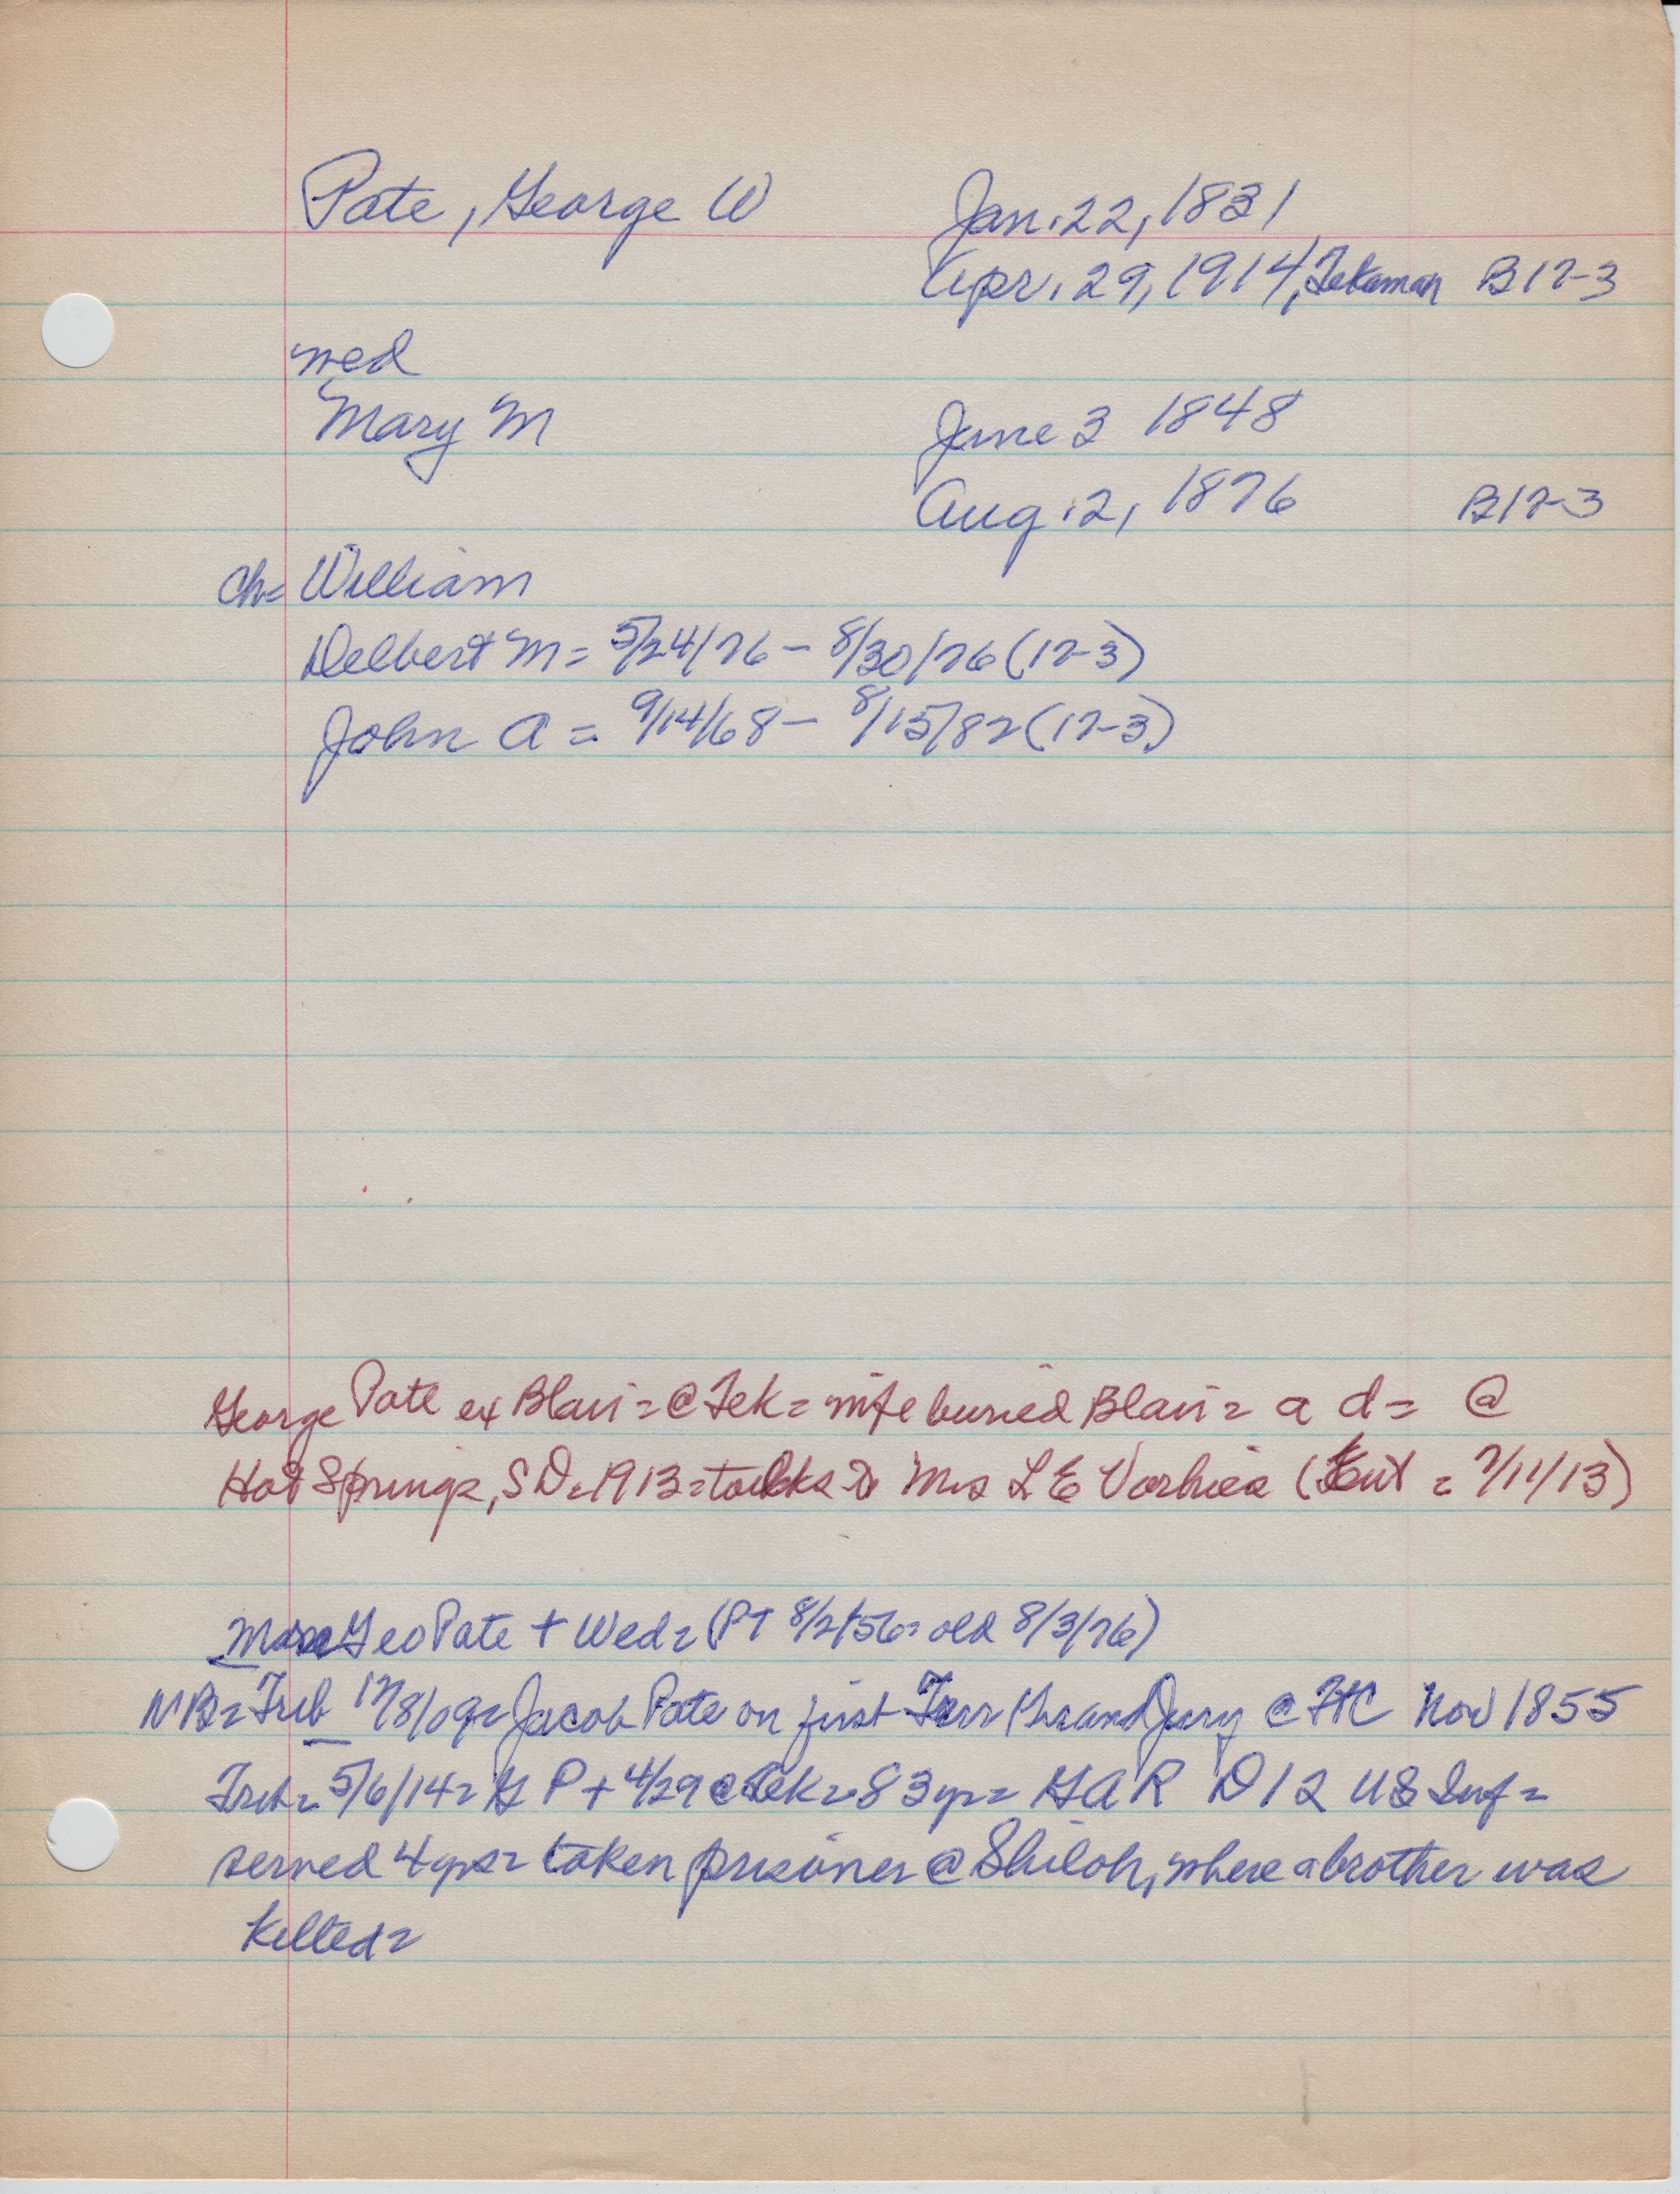 Pate, George W Jan. 22, 1831
Apr. 29, 1914, Tekamah B 17-3
wed
Mary M June 3 1848
Aug. 2, 1876 B17-3
Ch= William
Delbert M = 5/24/76 - 8/30/76 (17-3)
John A = 9/14/68 - 8/15/82 (17-3)
George Pate ex Blair = @ Tek = wife buried Blair = a d = @
Hot Springs, SD = 1913 = talks to Mrs L E Vorhies (Ent = 7/11/13)
Geo Pate + Wed = (PT 8/2/56 = old 8/3/76)
NB = Trib 12/8/09 = Jacob Pate on first Terr Grand Jury @ FtC Nov 1855
Trib = 5/6/14 = G P + 4/29 @ Tek = 83 yr = GAR D 12 US Inf =
served 4 yrs = taken prisoner @ Shiloh, where a brother was
killed =